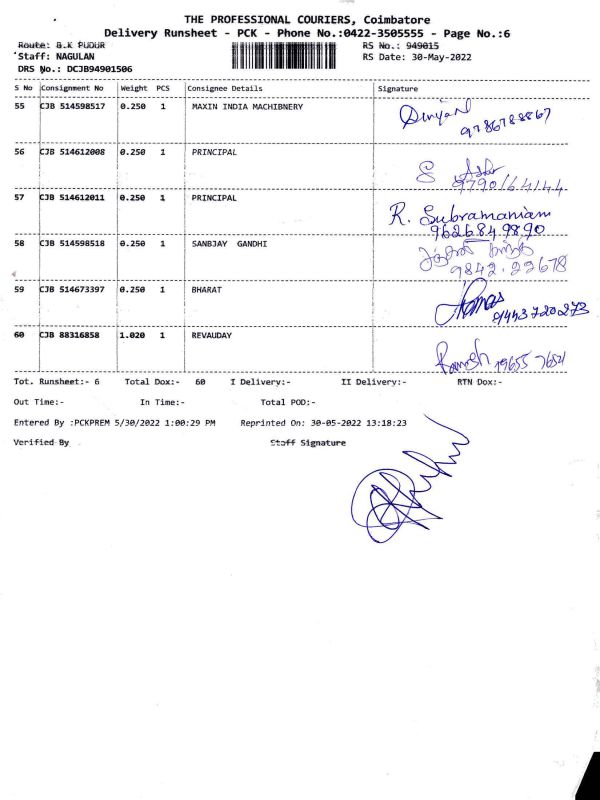 THE PROFESSIONAL COURIERS, Coimbatore
Delivery Runsheet - PCK - Phone No.:0422-3505555 - Page No.:6
Route: B.K PUDUR RS No.: 949015
Staff: NAGULAN RS Date: 30-May-2022
DRS No.: DCJB94901506
S No Consignment No Weight PCS Consignee Details Signature
55 CJB 514598517 0.250 1 MAXIN INDIA MACHIBNERY
9786788867
56 CJB 514612008 0.250 1 PRINCIPAL
9790164144
57 CJB 514612011 0.250 1 PRINCIPAL R. Subramaniam
9626849890
58 CJB 514598518 0.250 1 SANBJAY GANDHI
9842.22678
59 CJB 514673397 0.250 1 BHARAT
9443720273
60 CJB 88316858 1.020 1 REVAUDAY
Ramesh
Tot. Runsheet:- 6 Total Dox:- 60 I Delivery:- II Delivery:- RTN Dox:-
Out Time:- In Time:- Total POD:-
Entered By :PCKPREM 5/30/2022 1:00:29 PM Reprinted On: 30-05-2022 13:18:23
Verified By Staff Signature